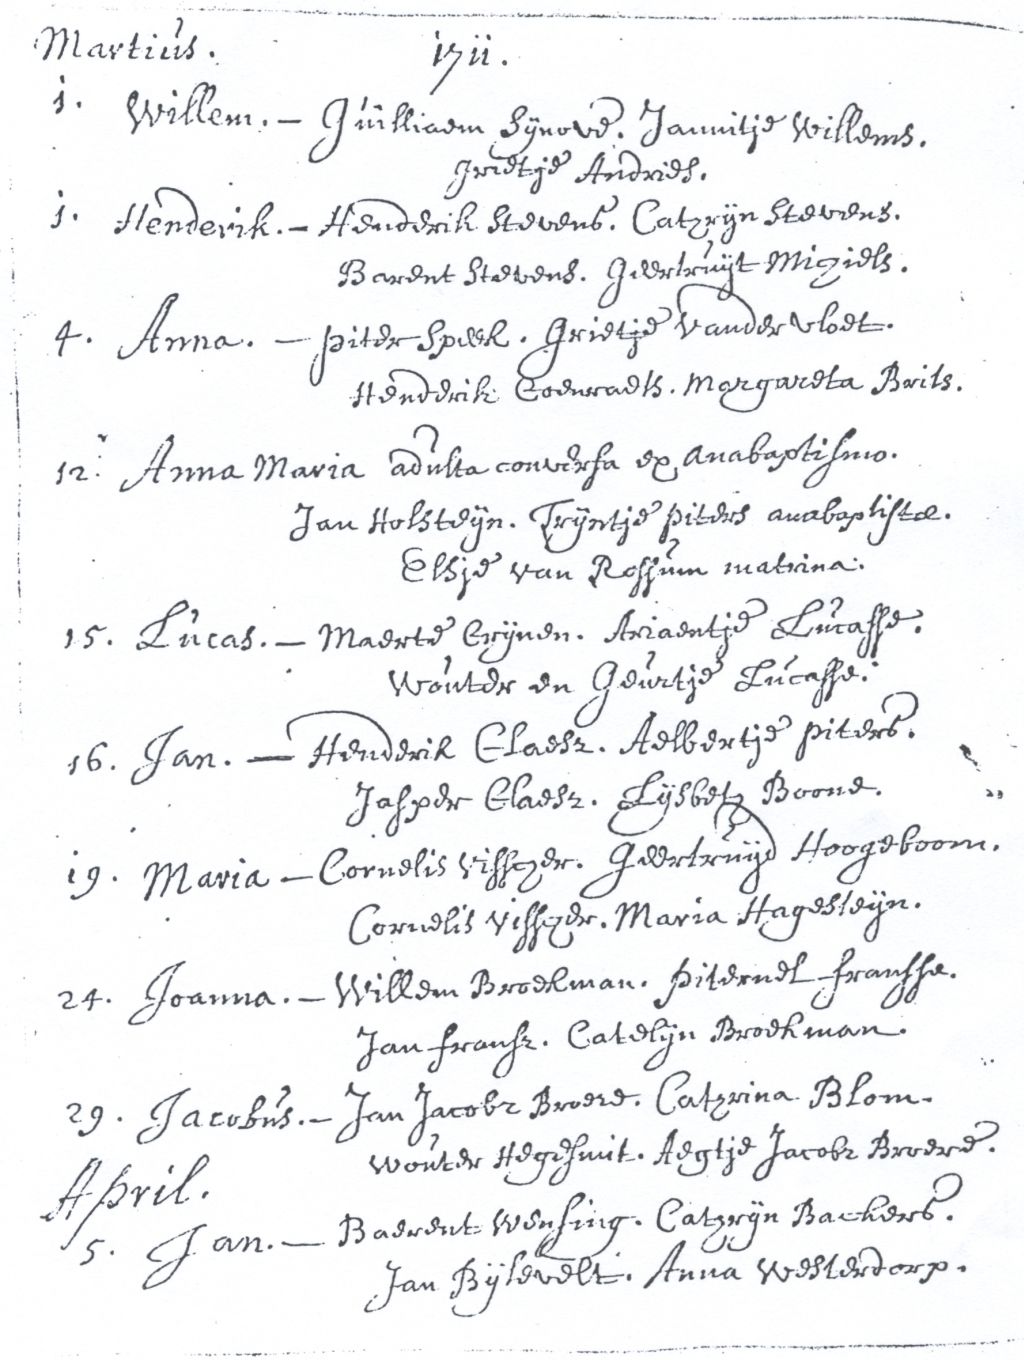 Martius. 1711.
1. Willem. – Guilliaem Synove. Jannitje Willems.
Grietje Andries.
1. Henderik. – Henderik Stevens. Catryn Stevens.
Barent Stevens. Geertruyt Michiels.
4. Anna. – Piter Speek. Grietje vander vloet.
Henderik Coenraets. Margareta Brits.
12. Anna Maria adulta conversa ex anabaptismo.
Jan Holsteyn. Tryntje Piters anabaptistæ.
Elsje van Rossum matrina.
15. Lucas. – Maerte Crynen. Ariaentje Lucasse.
Wouter en Geurtje Lucasse.
16. Jan. – Henderik Claesz. Aelbertje Piters.
Jasper Claesz. Lysbet Boone.
19. Maria – Cornelis Visscher. Geertruyd Hoogeboom.
Cornelis Visscher. Maria Hagesteyn.
24. Joanna. – Willem Broekman. Piternel fransse.
Jan fransz. Catelyn Broekman.
29. Jacobus. – Jan Jacobz Broere. Catrina Blom.
Wouter Hegesmit. Aegtje Jacobz Broere.
April.
5. Jan. – Baerent Wensing. Catryn Backers.
Jan Bylevelt. Anna Westerdorp.